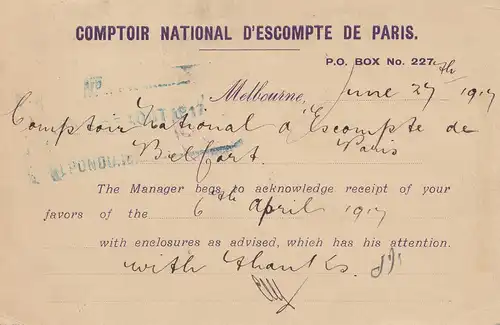 COMPTOIR NATIONAL D'ESCOMPTE DE PARIS.
P.O. BOX No. 227.
Melbourne, June 27th 1917
Comptoir National d'Escompte de
Paris
Belfort.
The Manager begs to acknowledge receipt of your
favors of the 6th April 1917
with enclosures as advised, which has his attention.
with thanks.